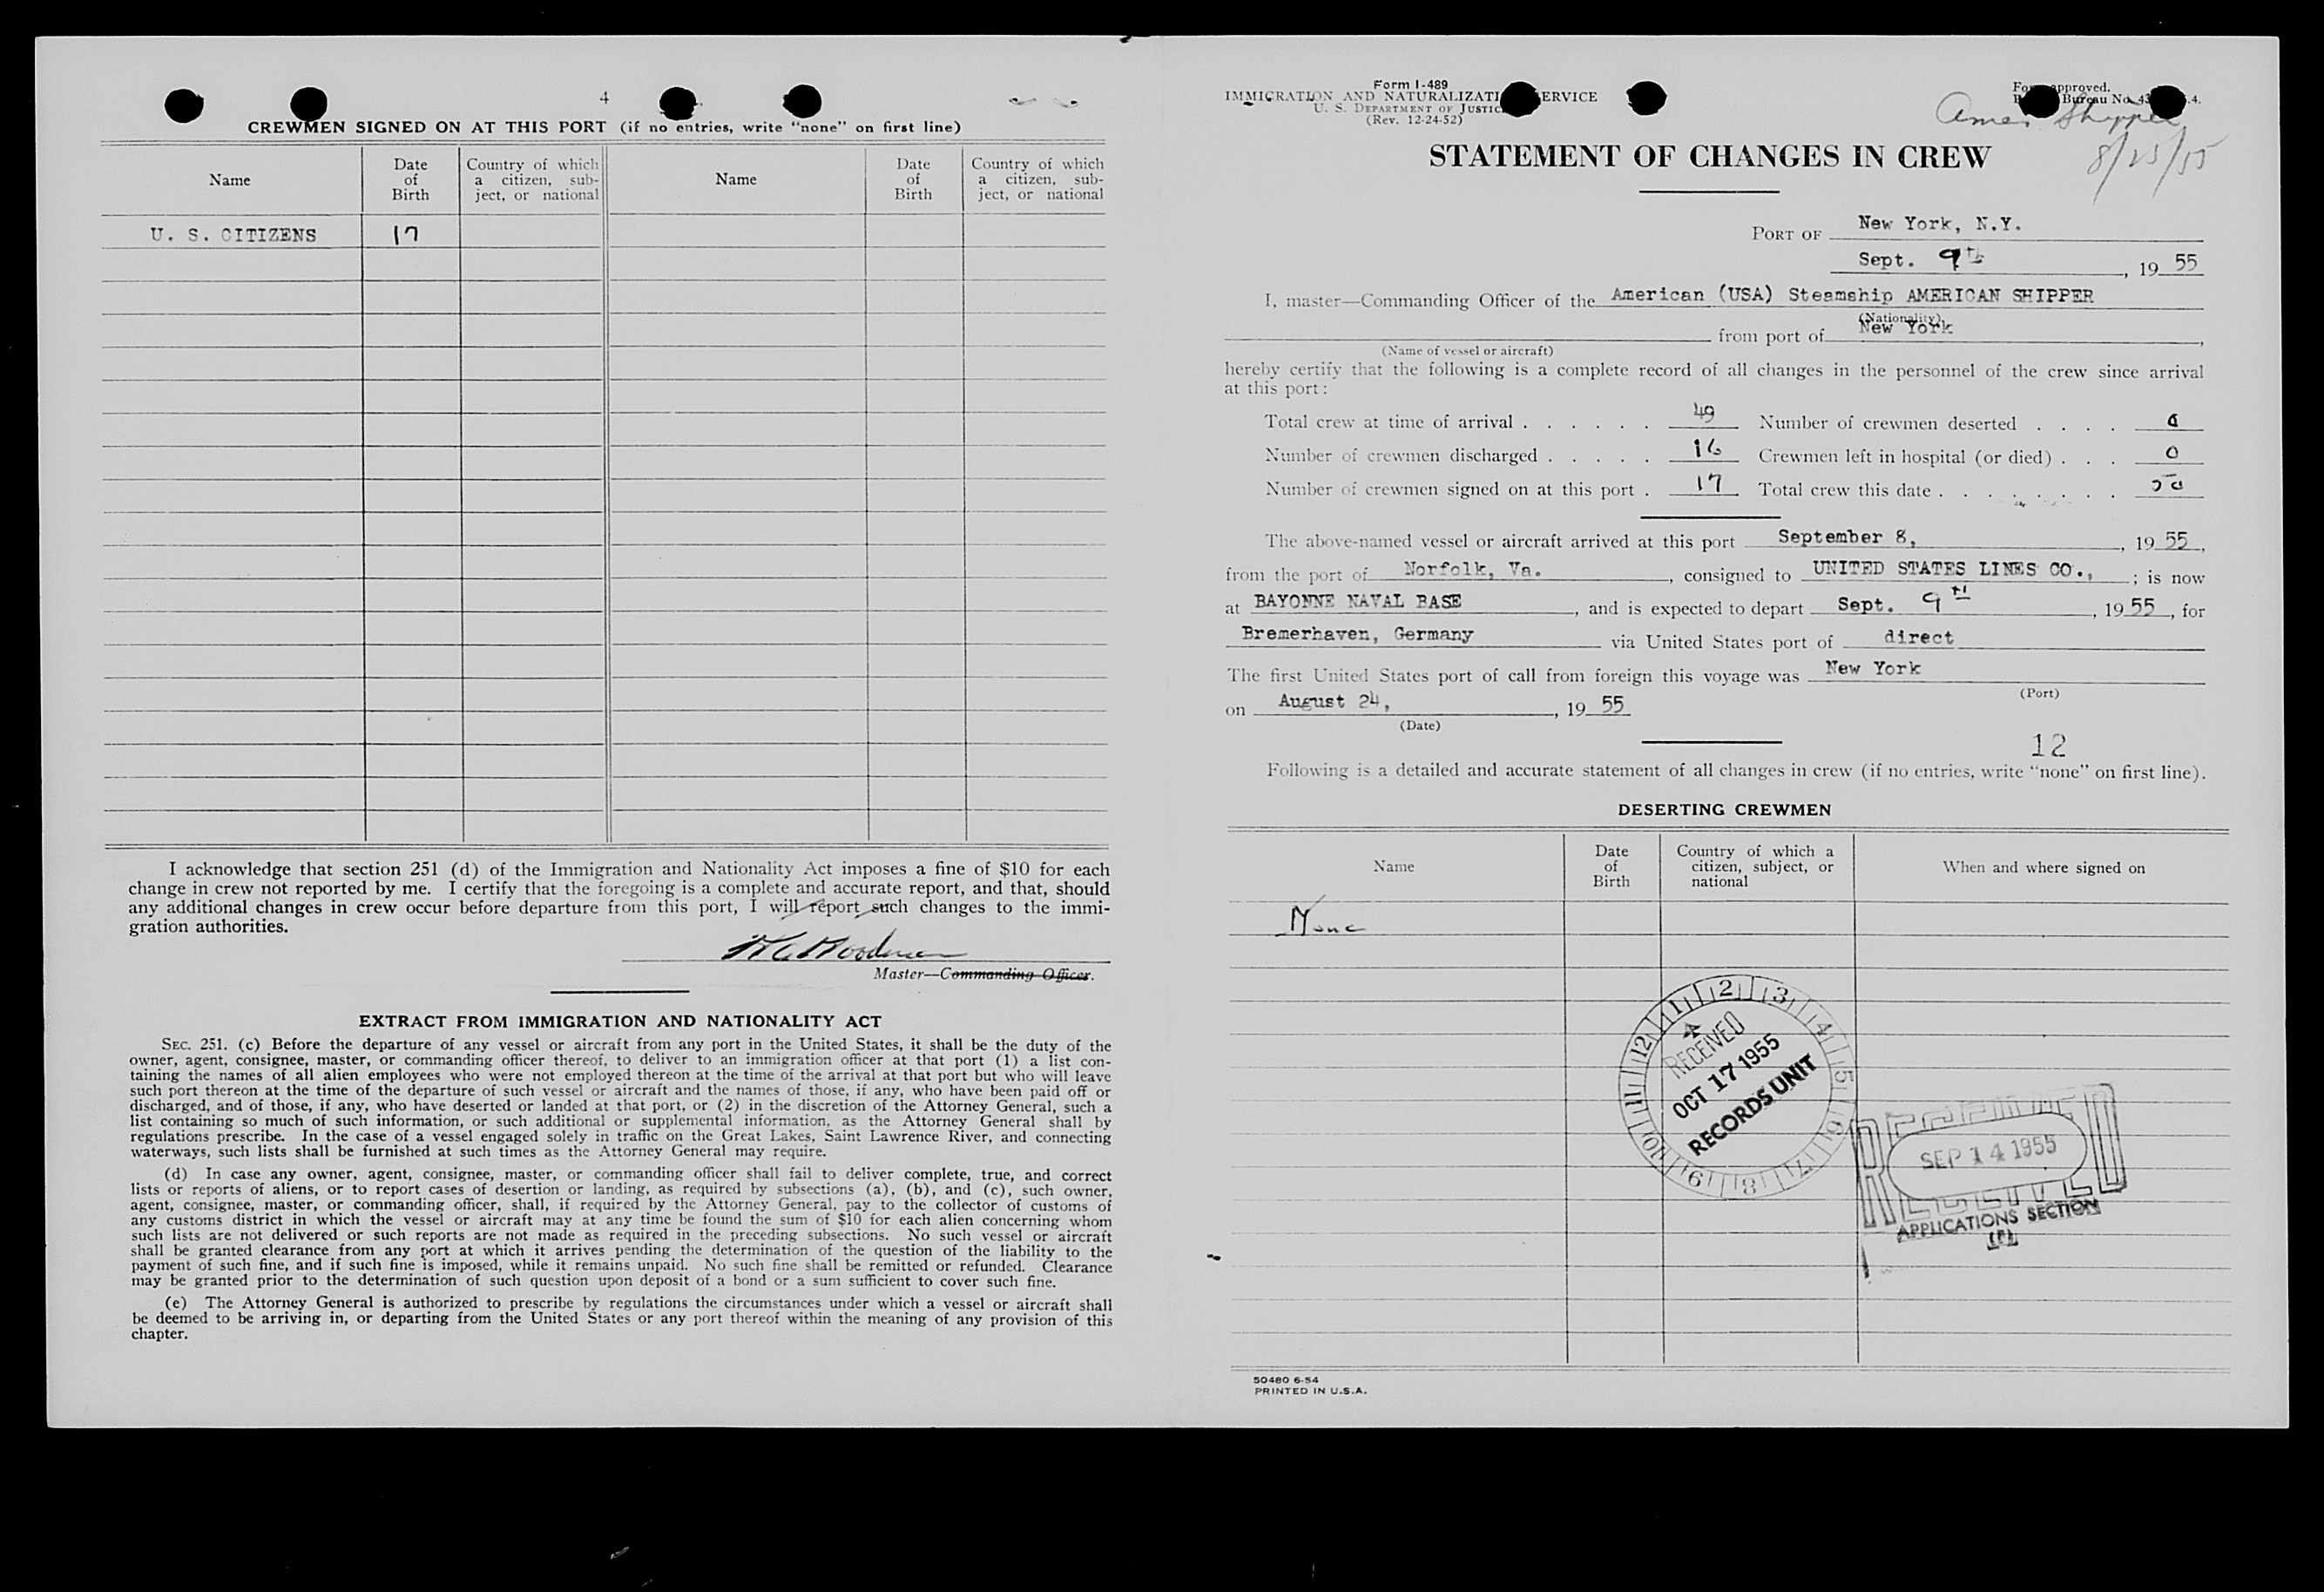 4
CREWMEN SIGNED ON AT THIS PORT (if no entries, write "none" on first line)
Name
Date
of
Birth
Country of which
a citizen, sub-
ject, or national
Name
Date
of
Birth
Country of which
a citizen, sub-
ject, or national
U. S. CITIZENS 17
I acknowledge that section 251 (d) of the Immigration and Nationality Act imposes a fine of $10 for each
change in crew not reported by me. I certify that the foregoing is a complete and accurate report, and that, should
any additional changes in crew occur before departure from this port, I will report such changes to the immi-
gration authorities.
Master—Commanding Officer.
EXTRACT FROM IMMIGRATION AND NATIONALITY ACT
SEC. 251. (c) Before the departure of any vessel or aircraft from any port in the United States, it shall be the duty of the
owner, agent, consignee, master, or commanding officer thereof, to deliver to an immigration officer at that port (1) a list con-
taining the names of all alien employees who were not employed thereon at the time of the arrival at that port but who will leave
such port thereon at the time of the departure of such vessel or aircraft and the names of those, if any, who have been paid off or
discharged, and of those, if any, who have deserted or landed at that port, or (2) in the discretion of the Attorney General, such a
list containing so much of such information, or such additional or supplemental information, as the Attorney General shall by
regulations prescribe. In the case of a vessel engaged solely in traffic on the Great Lakes, Saint Lawrence River, and connecting
waterways, such lists shall be furnished at such times as the Attorney General may require.
(d) In case any owner, agent, consignee, master, or commanding officer shall fail to deliver complete, true, and correct
lists or reports of aliens, or to report cases of desertion or landing, as required by subsections (a), (b), and (c), such owner,
agent, consignee, master, or commanding officer, shall, if required by the Attorney General, pay to the collector of customs of
any customs district in which the vessel or aircraft may at any time be found the sum of $10 for each alien concerning whom
such lists are not delivered or such reports are not made as required in the preceding subsections. No such vessel or aircraft
shall be granted clearance from any port at which it arrives pending the determination of the question of the liability to the
payment of such fine, and if such fine is imposed, while it remains unpaid. No such fine shall be remitted or refunded. Clearance
may be granted prior to the determination of such question upon deposit of a bond or a sum sufficient to cover such fine.
(e) The Attorney General is authorized to prescribe by regulations the circumstances under which a vessel or aircraft shall
be deemed to be arriving in, or departing from the United States or any port thereof within the meaning of any provision of this
chapter.
Form I-489
IMMIGRATION AND NATURALIZATI ERVICE
U. S. DEPARTMENT OF JUSTIC
(Rev. 12-24-52)
approved.
Bureau No. 43 4.
Amer Shipper
8/25/55
STATEMENT OF CHANGES IN CREW
PORT OF New York, N.Y.
Sept. 9th, 19 55
I, master—Commanding Officer of the American (USA) Steamship AMERICAN SHIPPER
(Nationality)
from port of New York,
(Name of vessel or aircraft)
hereby certify that the following is a complete record of all changes in the personnel of the crew since arrival
at this port:
Total crew at time of arrival . . . . . . 49 Number of crewmen deserted . . . . 0
Number of crewmen discharged . . . . . 16 Crewmen left in hospital (or died) . . . 0
Number of crewmen signed on at this port . 17 Total crew this date . . . . . . . . 50
The above-named vessel or aircraft arrived at this port September 8, , 19 55,
from the port of Norfolk, Va. , consigned to UNITED STATES LINES CO., ; is now
at BAYONNE NAVAL BASE , and is expected to depart Sept. 9th , 19 55, for
Bremerhaven, Germany via United States port of direct
The first United States port of call from foreign this voyage was New York
(Port)
on August 24, , 19 55
(Date)
12
Following is a detailed and accurate statement of all changes in crew (if no entries, write "none" on first line).
DESERTING CREWMEN
Name
Date
of
Birth
Country of which a
citizen, subject, or
national
When and where signed on
None
1 2 3 4 5 6 7 8 9 10 11 12
RECEIVED
OCT 17 1955
RECORDS UNIT
SEP 14 1955
RECEIVED
APPLICATIONS SECTION
50480 6-54
PRINTED IN U.S.A.